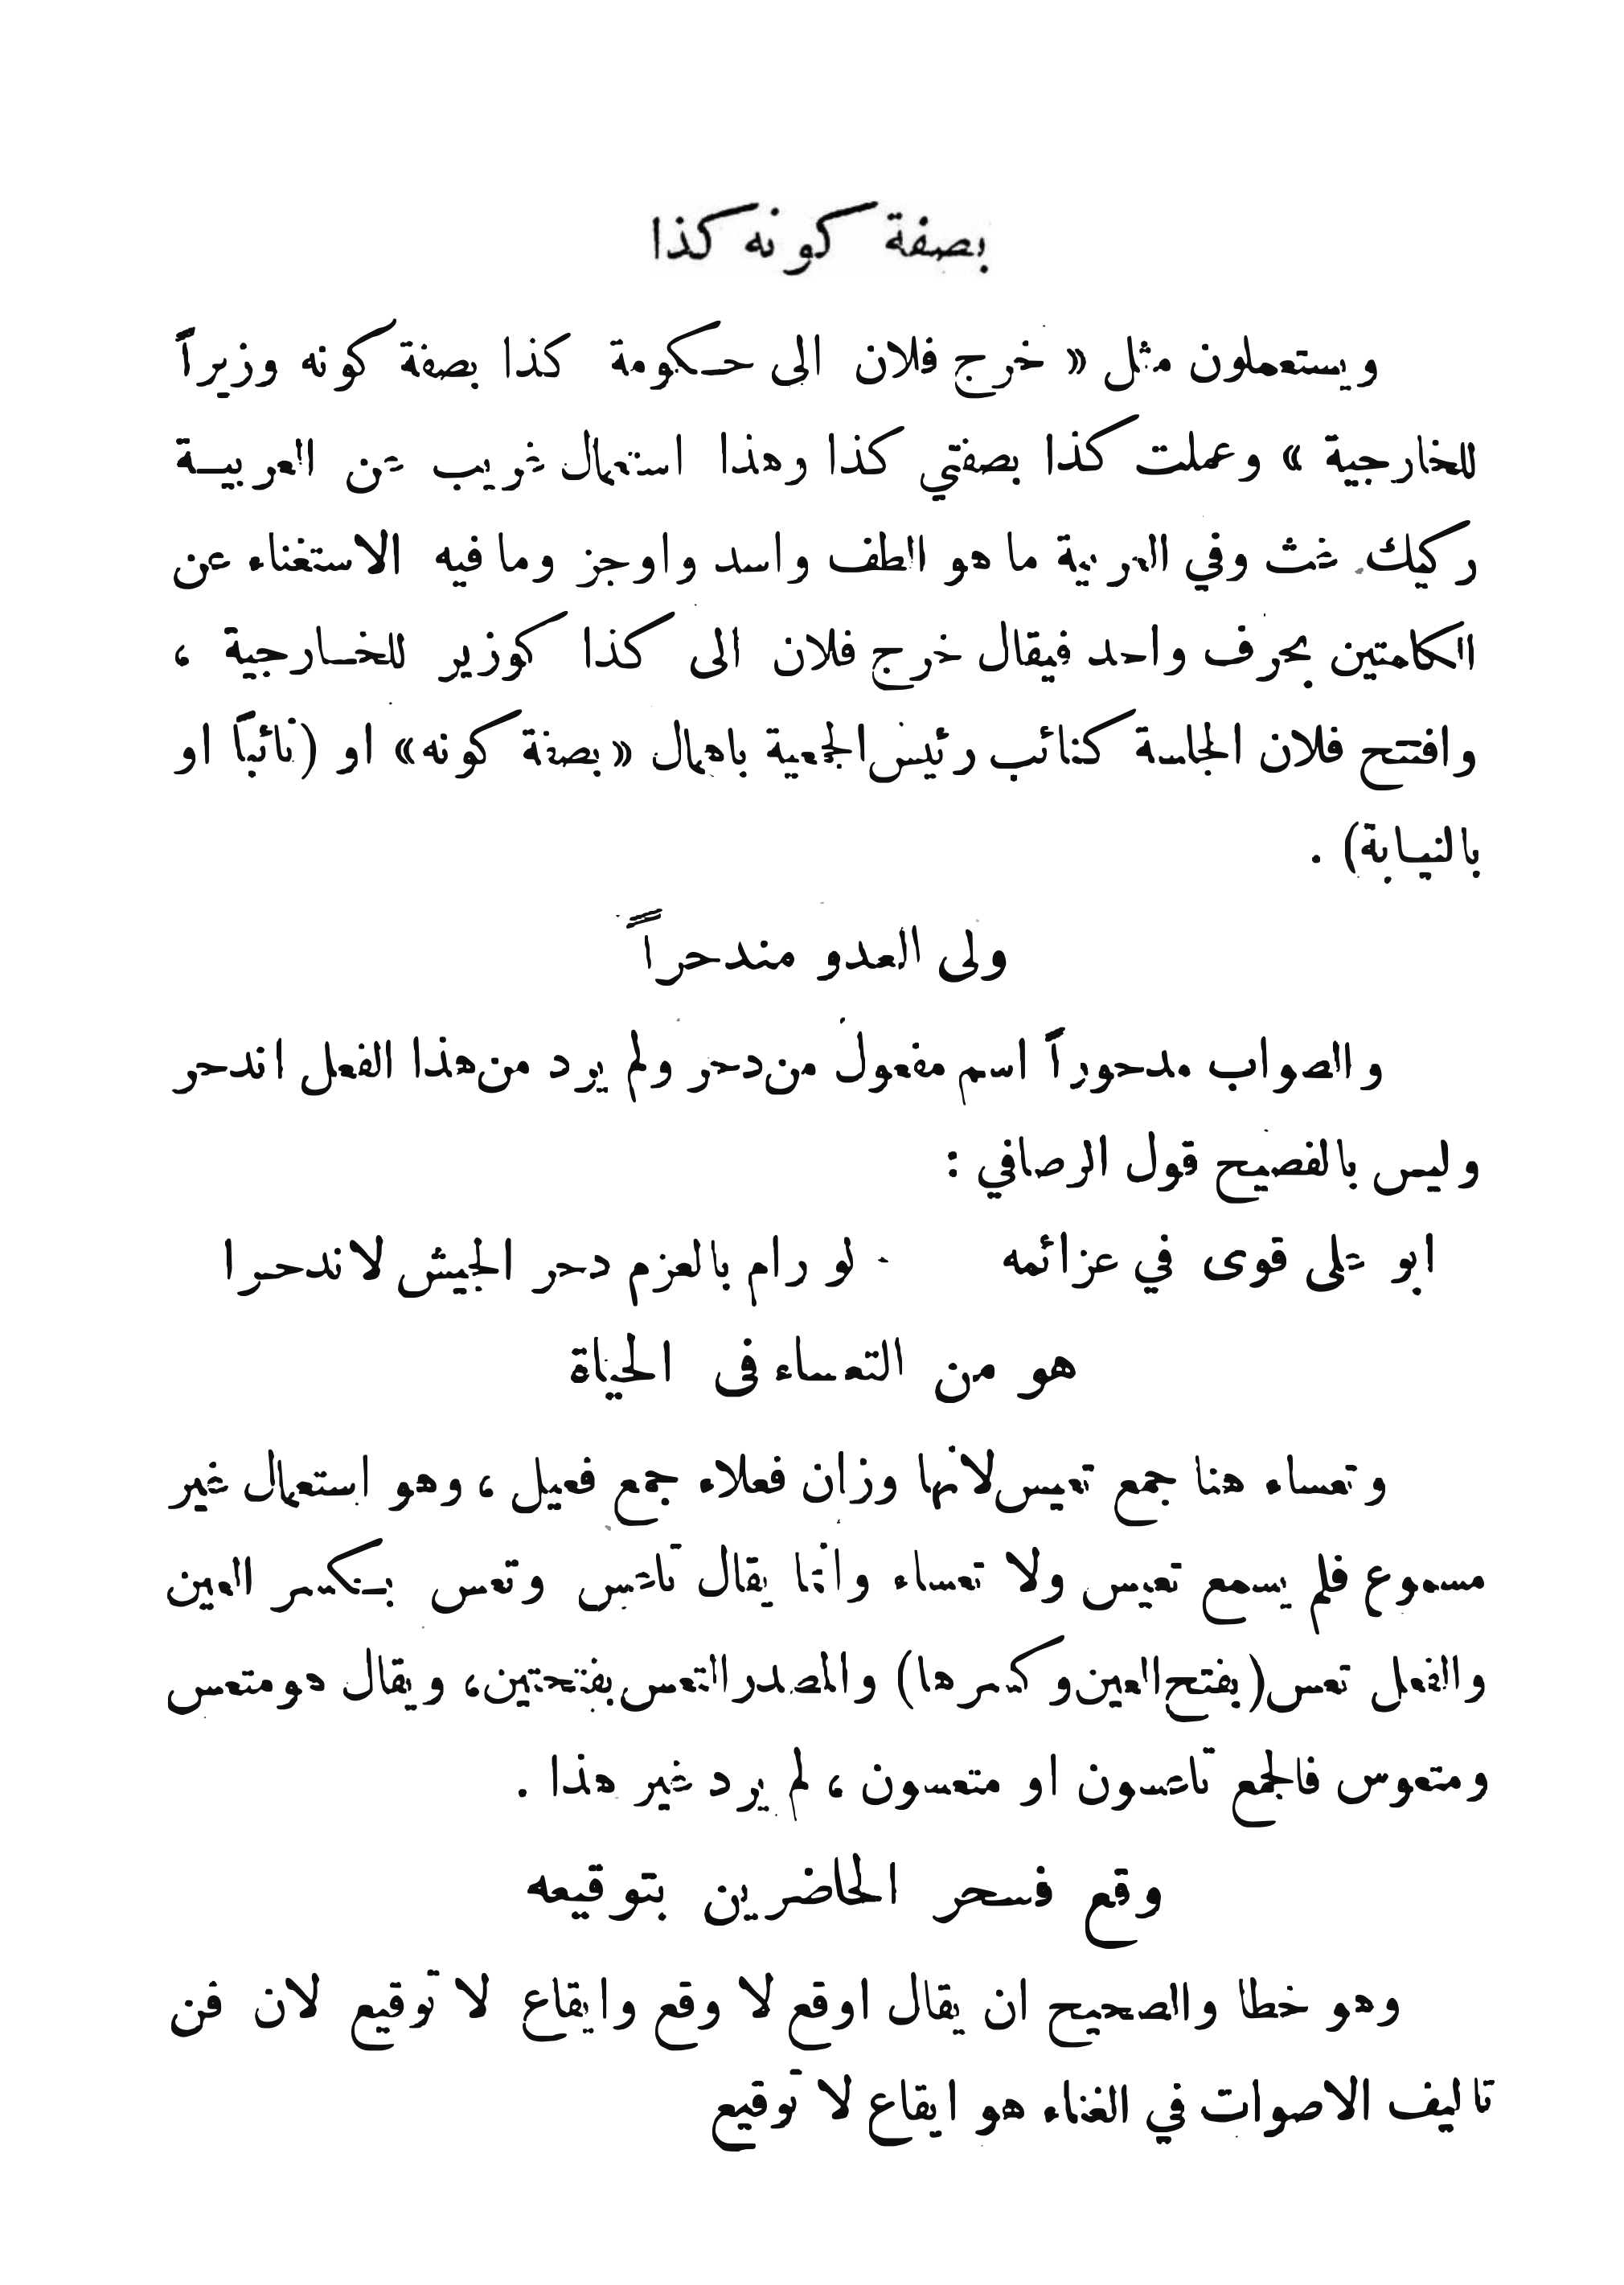 بصفة كونه كذا
ويستعملون مثل « خرج فلان الى حكومة كذا بصفة كونه وزيراً
للخارجية » وعملت كذا بصفتي كذا وهذا استعمال غريب عن العربية
ركيك غث وفي العربية ما هو الطف واسد واوجز وما فيه الاستغناء عن
الكلمتين بحرف واحد فيقال خرج فلان الى كذا كوزير للخارجية ،
وافتتح فلان الجلسة كنائب رئيس الجمعية باهمال « بصفة كونه» او (نائباً او
بالنيابة) .
ولى العدو مندحراً
والصواب مدحوراً اسم مفعول من دحر ولم يرد من هذا الفعل اندحر
وليس بالفصيح قول الرصافي :
ابو علي قوى في عزائمه لو رام بالعزم دحر الجيش لاندحرا
هو من التعساء فى الحياة
وتعساء هنا جمع تعيس لانها وزان فعلاء جمع فعيل ، وهو استعمال غير
مسموع فلم يسمع تعيس ولا تعساء وانما يقال تاعس وتعس بكسر العين
والفعل تعس (بفتح العين وكسرها) والمصدر التعس بفتحتين، ويقال هو متعس
ومتعوس فالجمع تاعسون او متعسون ، لم يرد غير هذا .
وقع فسحر الحاضرين بتوقيعه
وهو خطا والصحيح ان يقال اوقع لا وقع وايقاع لا توقيع لان فن
تاليف الاصوات في الغناء هو ايقاع لا توقيع